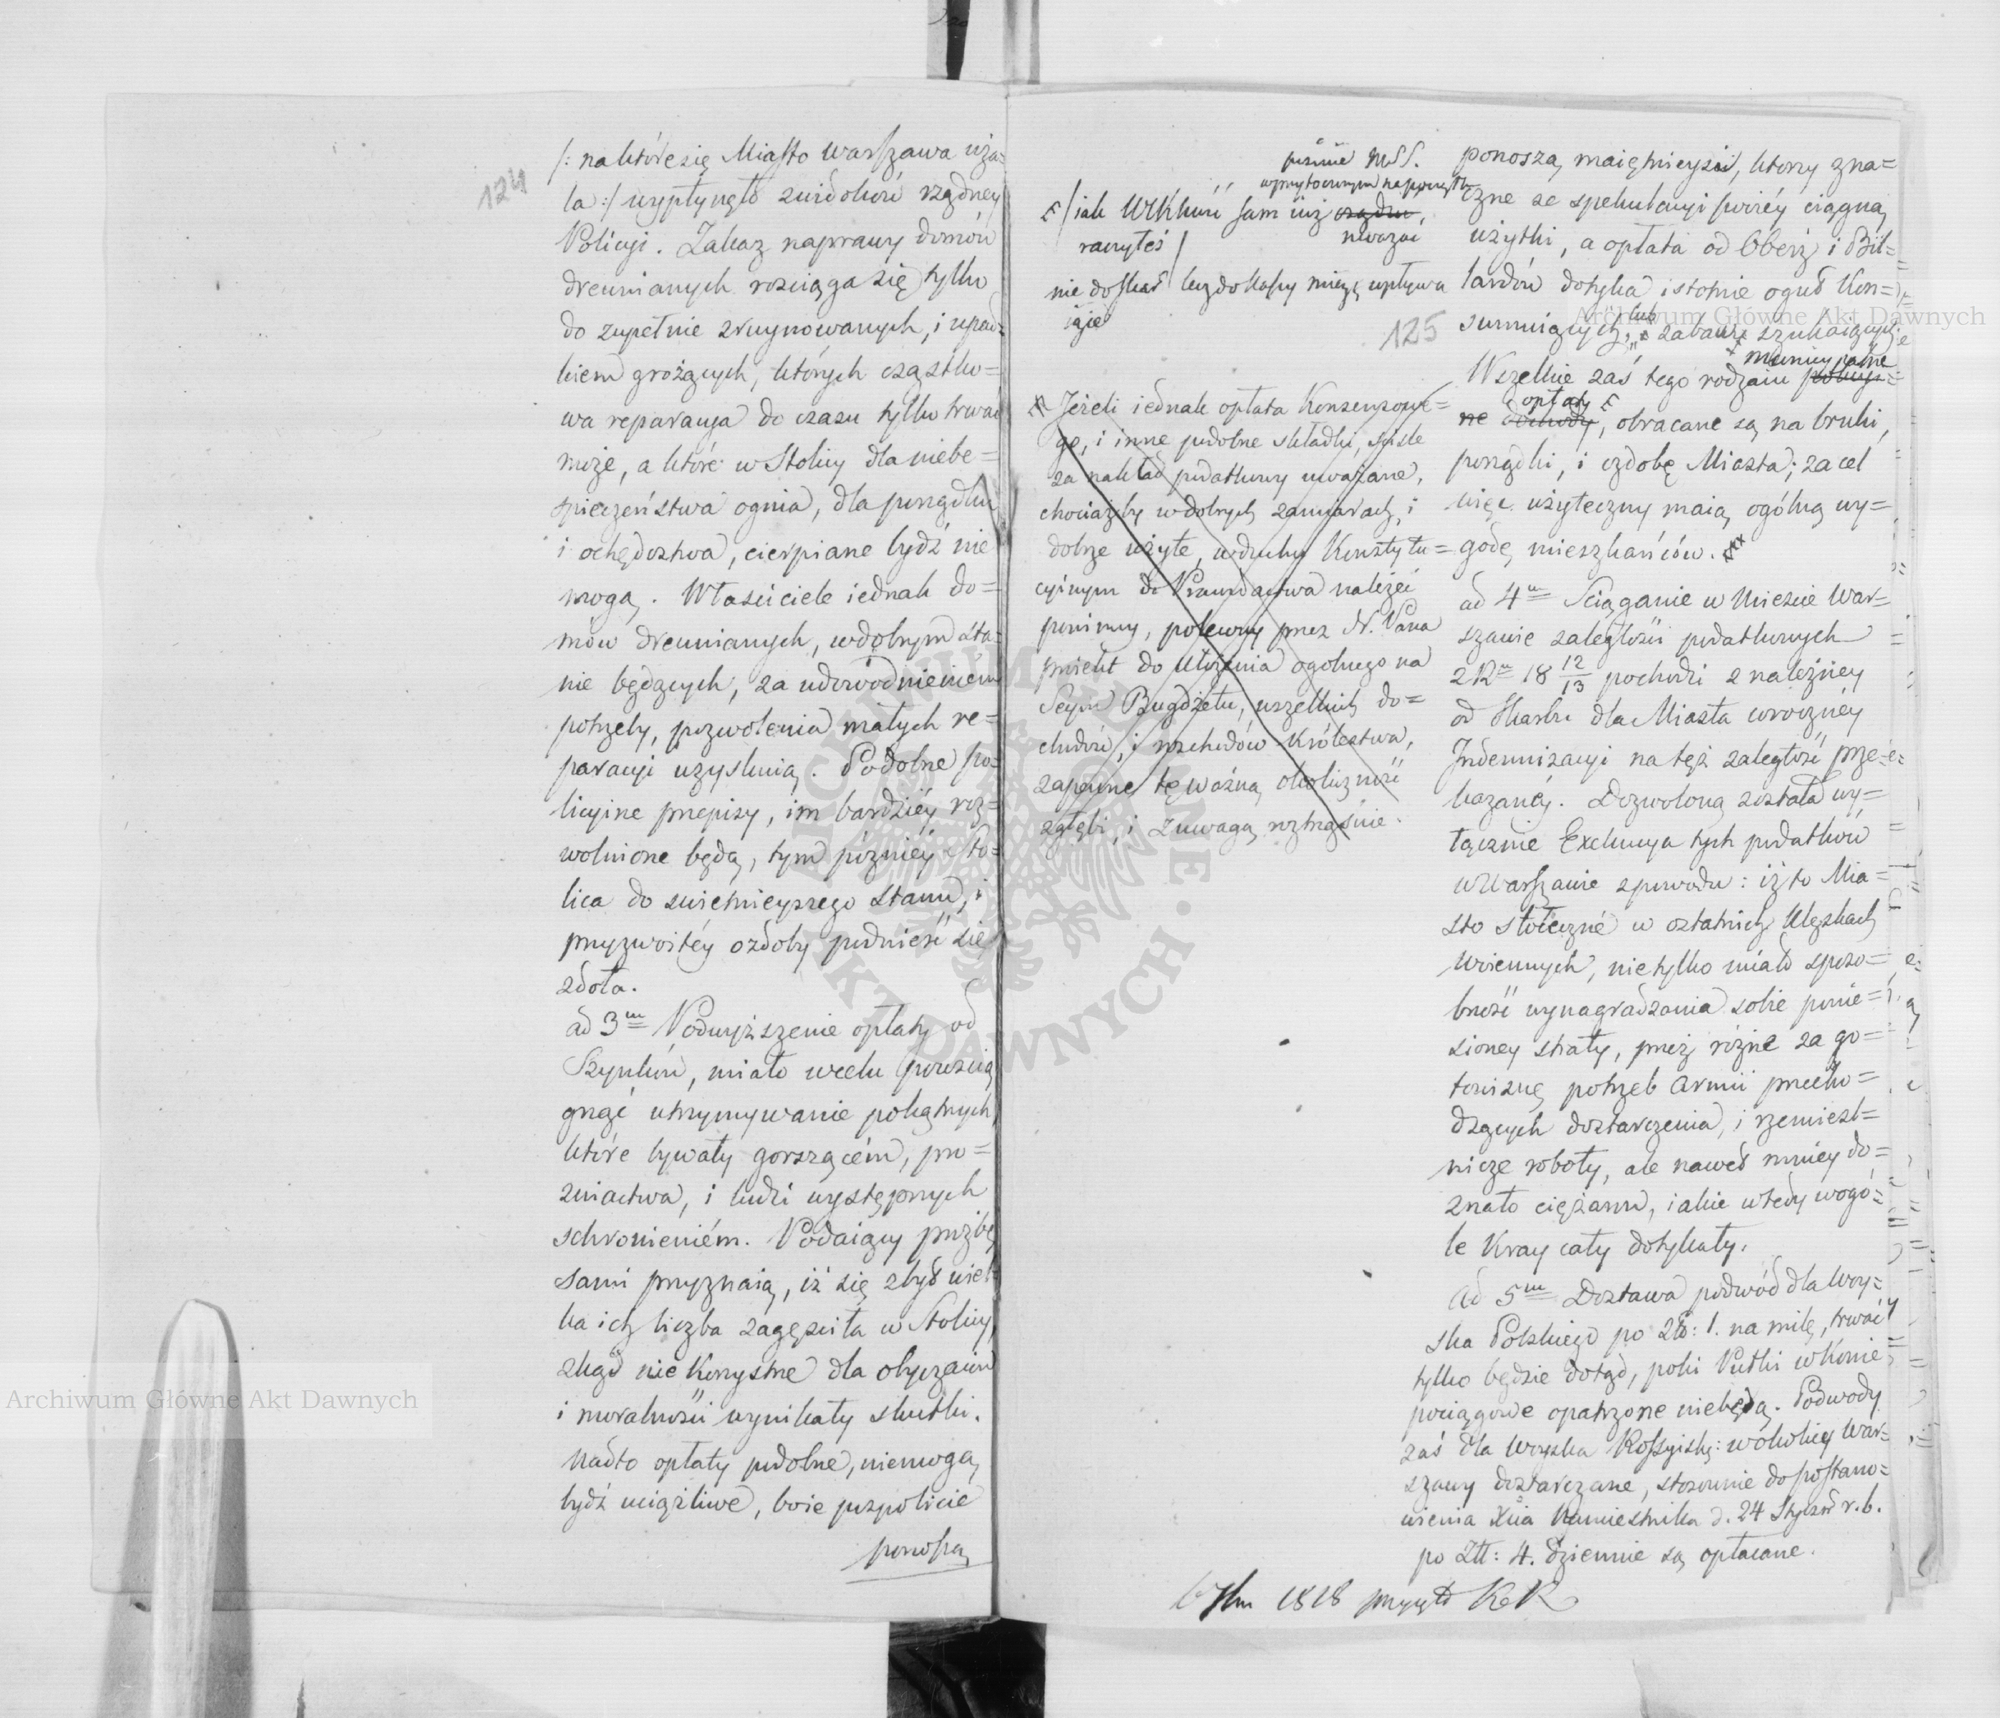 124
/: na które się Miasto Warszawa uża=
la :/ wypłynęło z widoków rządney
Policyi. Zakaz naprawy domów
drewnianych rosciąga się tylko
do zupełnie zruynowanych, i upad=
kiem grożących, których cząstko=
wa reparacya do czasu tylko trwać
może, a które w Stolicy dla niebe=
spieczeństwa ognia, dla porządku
i ochędostwa, cierpiane bydź nie
mogą. Właściciele iednak do=
mów drewnianych, w dobrym sta=
nie będących, za udowodnieniem
potrzeby, pozwolenia małych re=
paracyi uzyskuią. Podobne po=
licyine przepisy, im bardziéy roz=
wolnione będą, tym późniéy Sto=
lica do swietnieyszego stanu, i
przyzwoitéy ozdoby podnieść się
zdoła.
ad 3m Podwyższenie opłaty od
Szynków, miało w celu powścią
gnąć utrzymywanie pokątnych
które bywały gorszącém, pró=
żniactwa, i ludzi występnych
schronieniém. Podaiący prożbę
sami przyznaią, iż się zbyt wiel=
ka ich liczba zagęściła w Stolicy,
zkąd nie korzystne dla obyczaiów
i moralności wynikały skutki.
Nadto opłaty podobne, niemogą
bydź uciążliwe, bo ie pospolicie
ponoszą
F / iak WKMość sam iuż rządu,
raczyłeś /
125
Jeżeli iednak opłata Konsensowe=
go, i inne podobne składki, ściśle
za nakład podatkowy uważane,
chociażby w dobrych zamiarach, i
dobrze użyte, w duchu Konstytu=
cyinym do Prawodactwa należeć
powinny, polecony przez N. Pana
proiekt do ułożenia ogolnego na
Seym Bugdżetu, wszelkich do=
chodów, i rozchodów Królestwa,
zapewne tę ważną okoliczność
zgłębi, i z uwagą roztrząśnie.
ponoszą maiętnieysi, ktorzy zna=
czne ze spekulacyi swoiéy ciągną
użytki, a opłata od Oberż i Bil=
lardów dotyka istotnie ogół Kon=
sumuiących, lub zabaw szukaiących.
municypalne
Wszelkie zaś tego rodzaiu
opłaty F
ne dochody, obracane są na bruki,
porządki, i ozdobę Miasta; za cel
więc użyteczny maią ogólną wy=
godę mieszkańców.
ad 4m Sciąganie w Miescie War=
szawie zaległości podatkowych
z Rku 18 12/13 pochodzi z należney
od Skarbu dla Miasta coroczney
Indemnizacyi na tęż zaległość prze=
kazanéy. Dozwoloną została wy=
łącznie Exekucya tych podatków
w Warszawie z powodu: iż to Mia=
sto stołeczné w ostatnich klęskach
woiennych, nietylko miało sposo=
bność wynagradzania sobie ponie=
sioney straty, przez różne za go=
towiznę potrzeb armii przecho=
dzących dostarczenia, i rzemieśl=
nicze roboty, ale nawet mniey do=
znało ciężaru, iakie wtedy wogó=
le Kray cały dotykały.
Ad 5m Dostawa podwód dla Woy=
ska Polskiego po Zło: 1. na milę, trwać
tylko będzie dotąd, poki Pułki w konie
pociągowe opatrzone niebędą. Podwody
zaś dla Woyska Rossyisk: w okolicy War=
szawy dostarczane, stosownie do postano=
wienia Xcia Namiestnika d. 24 Stycznia r. b.
po Złł: 4. dziennie są opłacane.
1818 przyjęto